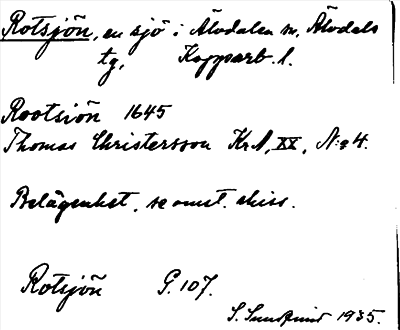 Rotsjön, en sjö i Älvdalen sn, Älvdals
tg, Kopparb. l.
Rootsiön 1645
Thomas Christersson Kr.A, XX, N:o 4.
Belägenhet, se omst. skiss.
Rotsjön G. 107.
S. Sundquist 1935.